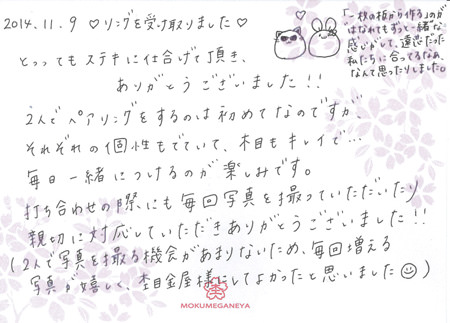 2014.11.9 ♡リングを受け取りました♡
「一枚の板から作る」のが
はなれてもずっと一緒な
感じがして、遠恋だった
私たちに合ってるなぁ、
なんて思ったりしました。
とってもステキに仕上げて頂き、
ありがとうございました!!
2人でペアリングをするのは初めてなのですが、
それぞれの個性もでていて、木目もキレイで…
毎日一緒につけるのが楽しみです。
打ち合わせの際にも毎回写真を撮っていただいたり
親切に対応していただきありがとうございました!!
(2人で写真を撮る機会があまりないため、毎回増える
写真が嬉しく、杢目金屋様にしてよかったと思いました☺)
MOKUMEGANEYA